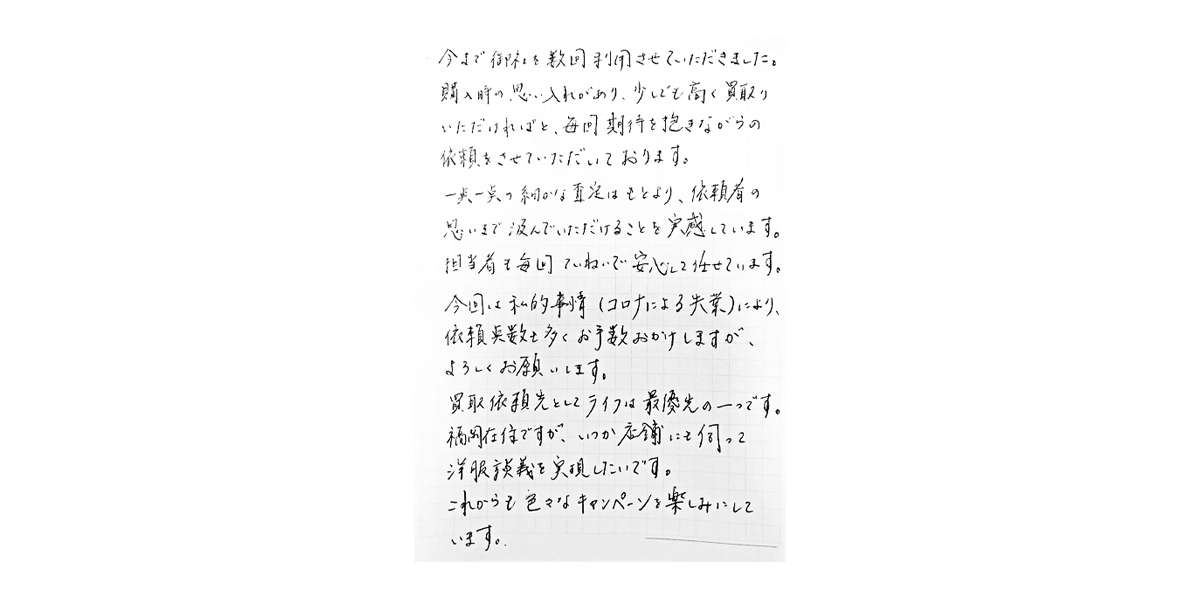 今まで御社を数回利用させていただきました。
購入時の思い入れがあり、少しでも高く買取り
いただければと、毎回期待を抱きながらの
依頼をさせていただいております。
一点一点の細かな査定はもとより、依頼者の
思いまで汲んでいただけることを実感しています。
担当者も毎回ていねいで安心して任せています。
今回は私的事情(コロナによる失業)により、
依頼点数も多くお手数おかけしますが、
よろしくお願いします。
買取依頼先としてライフは最優先の一つです。
福岡在住ですが、いつか店舗にも伺って
洋服談義を実現したいです。
これからも色々なキャンペーンを楽しみにして
います。